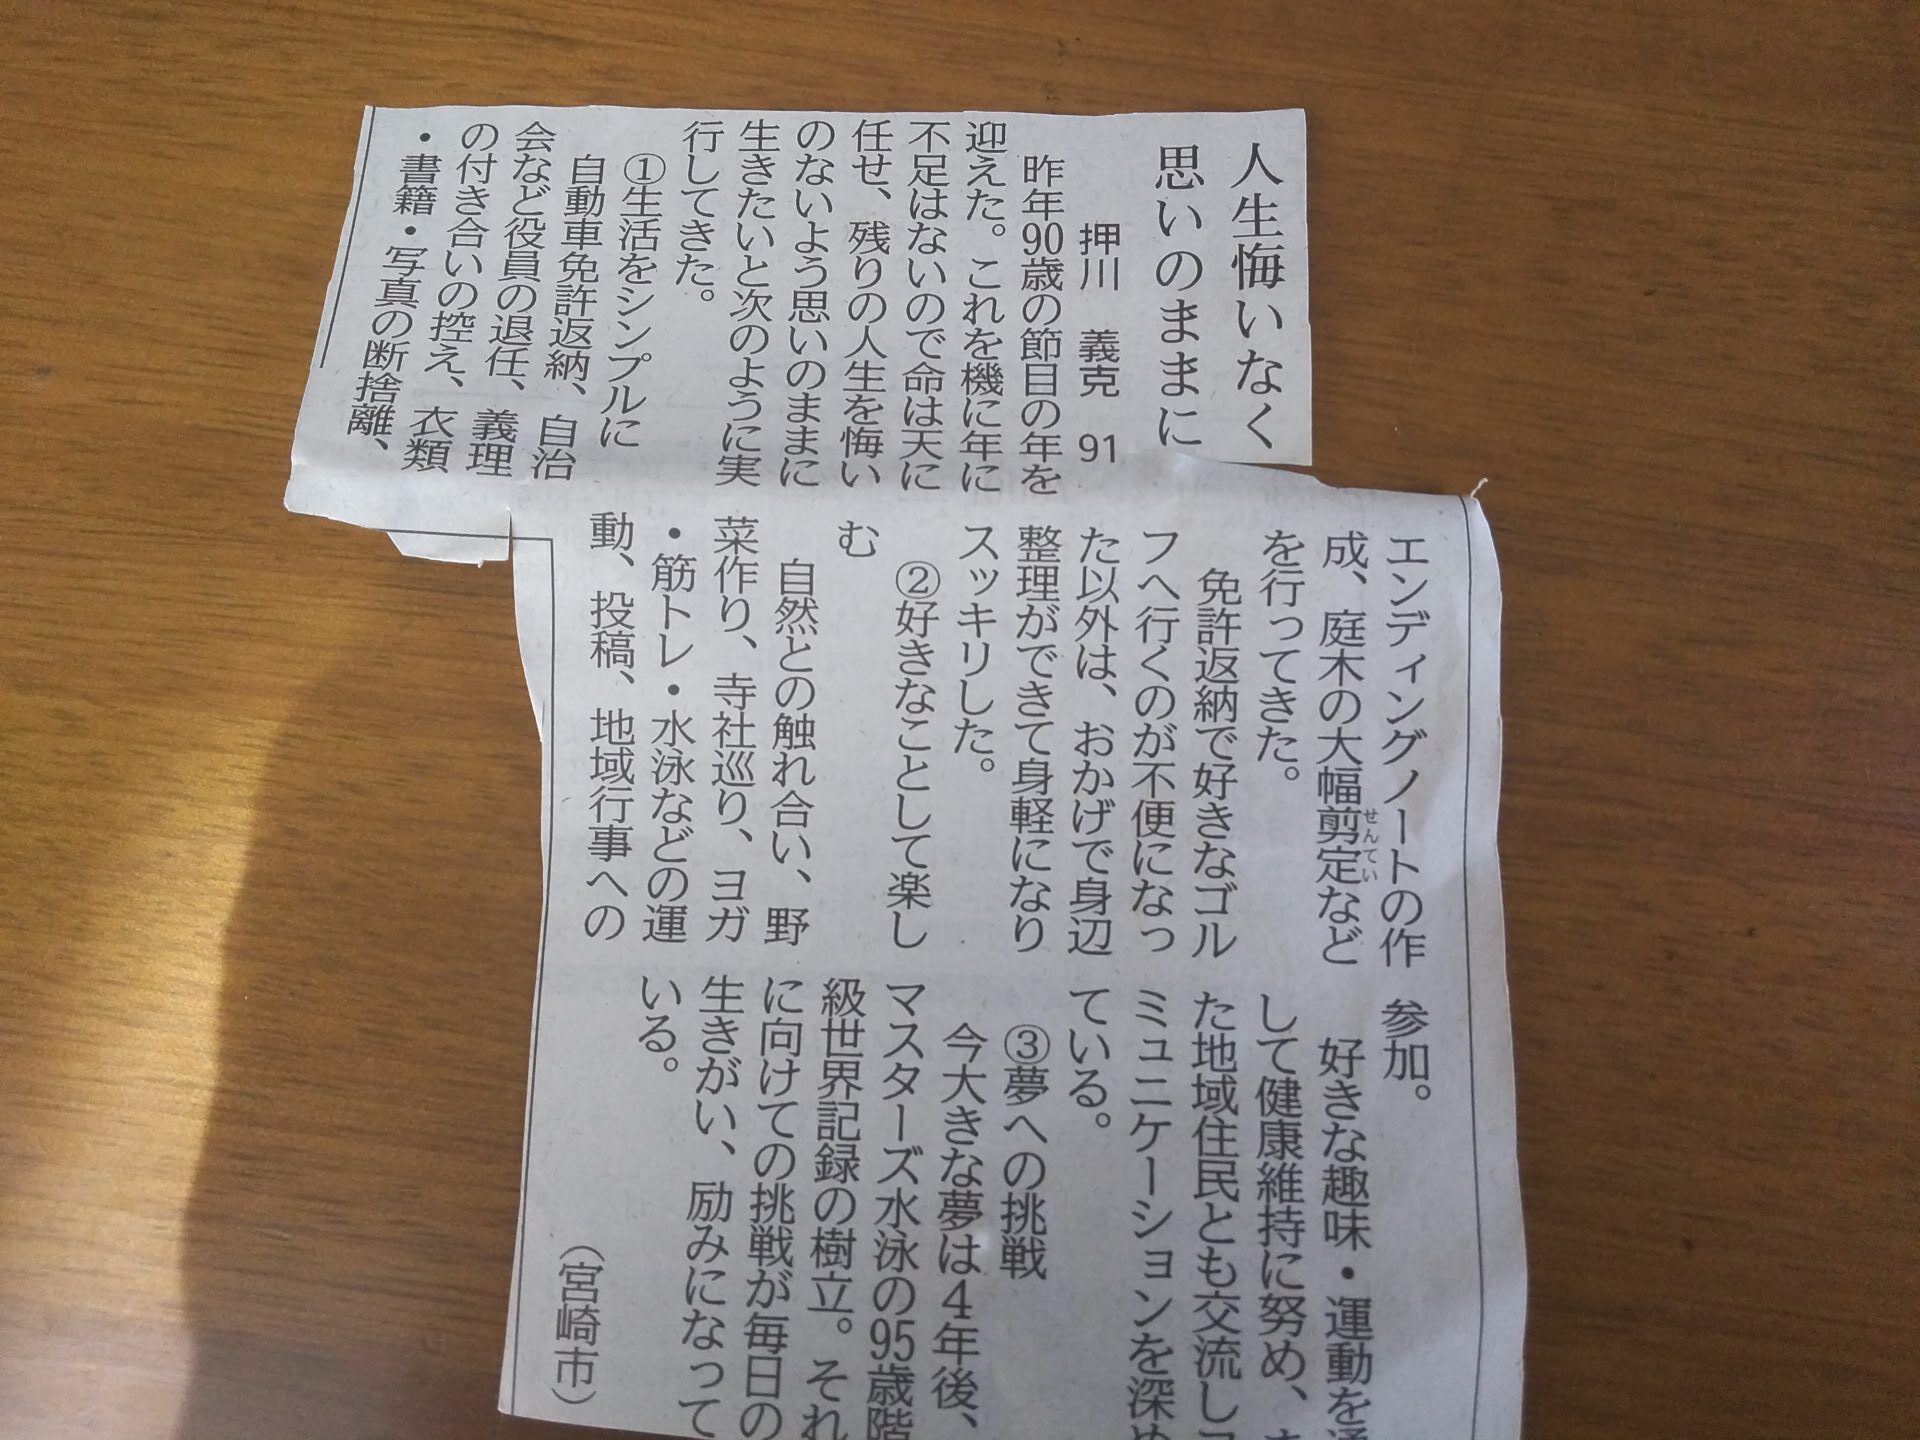 人生悔いなく
思いのままに
押川 義克 91
昨年90歳の節目の年を
迎えた。これを機に年に
不足はないので命は天に
任せ、残りの人生を悔い
のないよう思いのままに
生きたいと次のように実
行してきた。
①生活をシンプルに
自動車免許返納、自治
会など役員の退任、義理
の付き合いの控え、衣類
・書籍・写真の断捨離、
エンディングノートの作
成、庭木の大幅剪定など
せんてい
を行ってきた。
免許返納で好きなゴル
フへ行くのが不便になっ
た以外は、おかげで身辺
整理ができて身軽になり
スッキリした。
②好きなことして楽し
む
自然との触れ合い、野
菜作り、寺社巡り、ヨガ
・筋トレ・水泳などの運
動、投稿、地域行事への
参加。
好きな趣味・運動を通
して健康維持に努め、ま
た地域住民とも交流しコ
ミュニケーションを深め
ている。
③夢への挑戦
今大きな夢は4年後、
マスターズ水泳の95歳階
級世界記録の樹立。それ
に向けての挑戦が毎日の
生きがい、励みになって
いる。
（宮崎市）